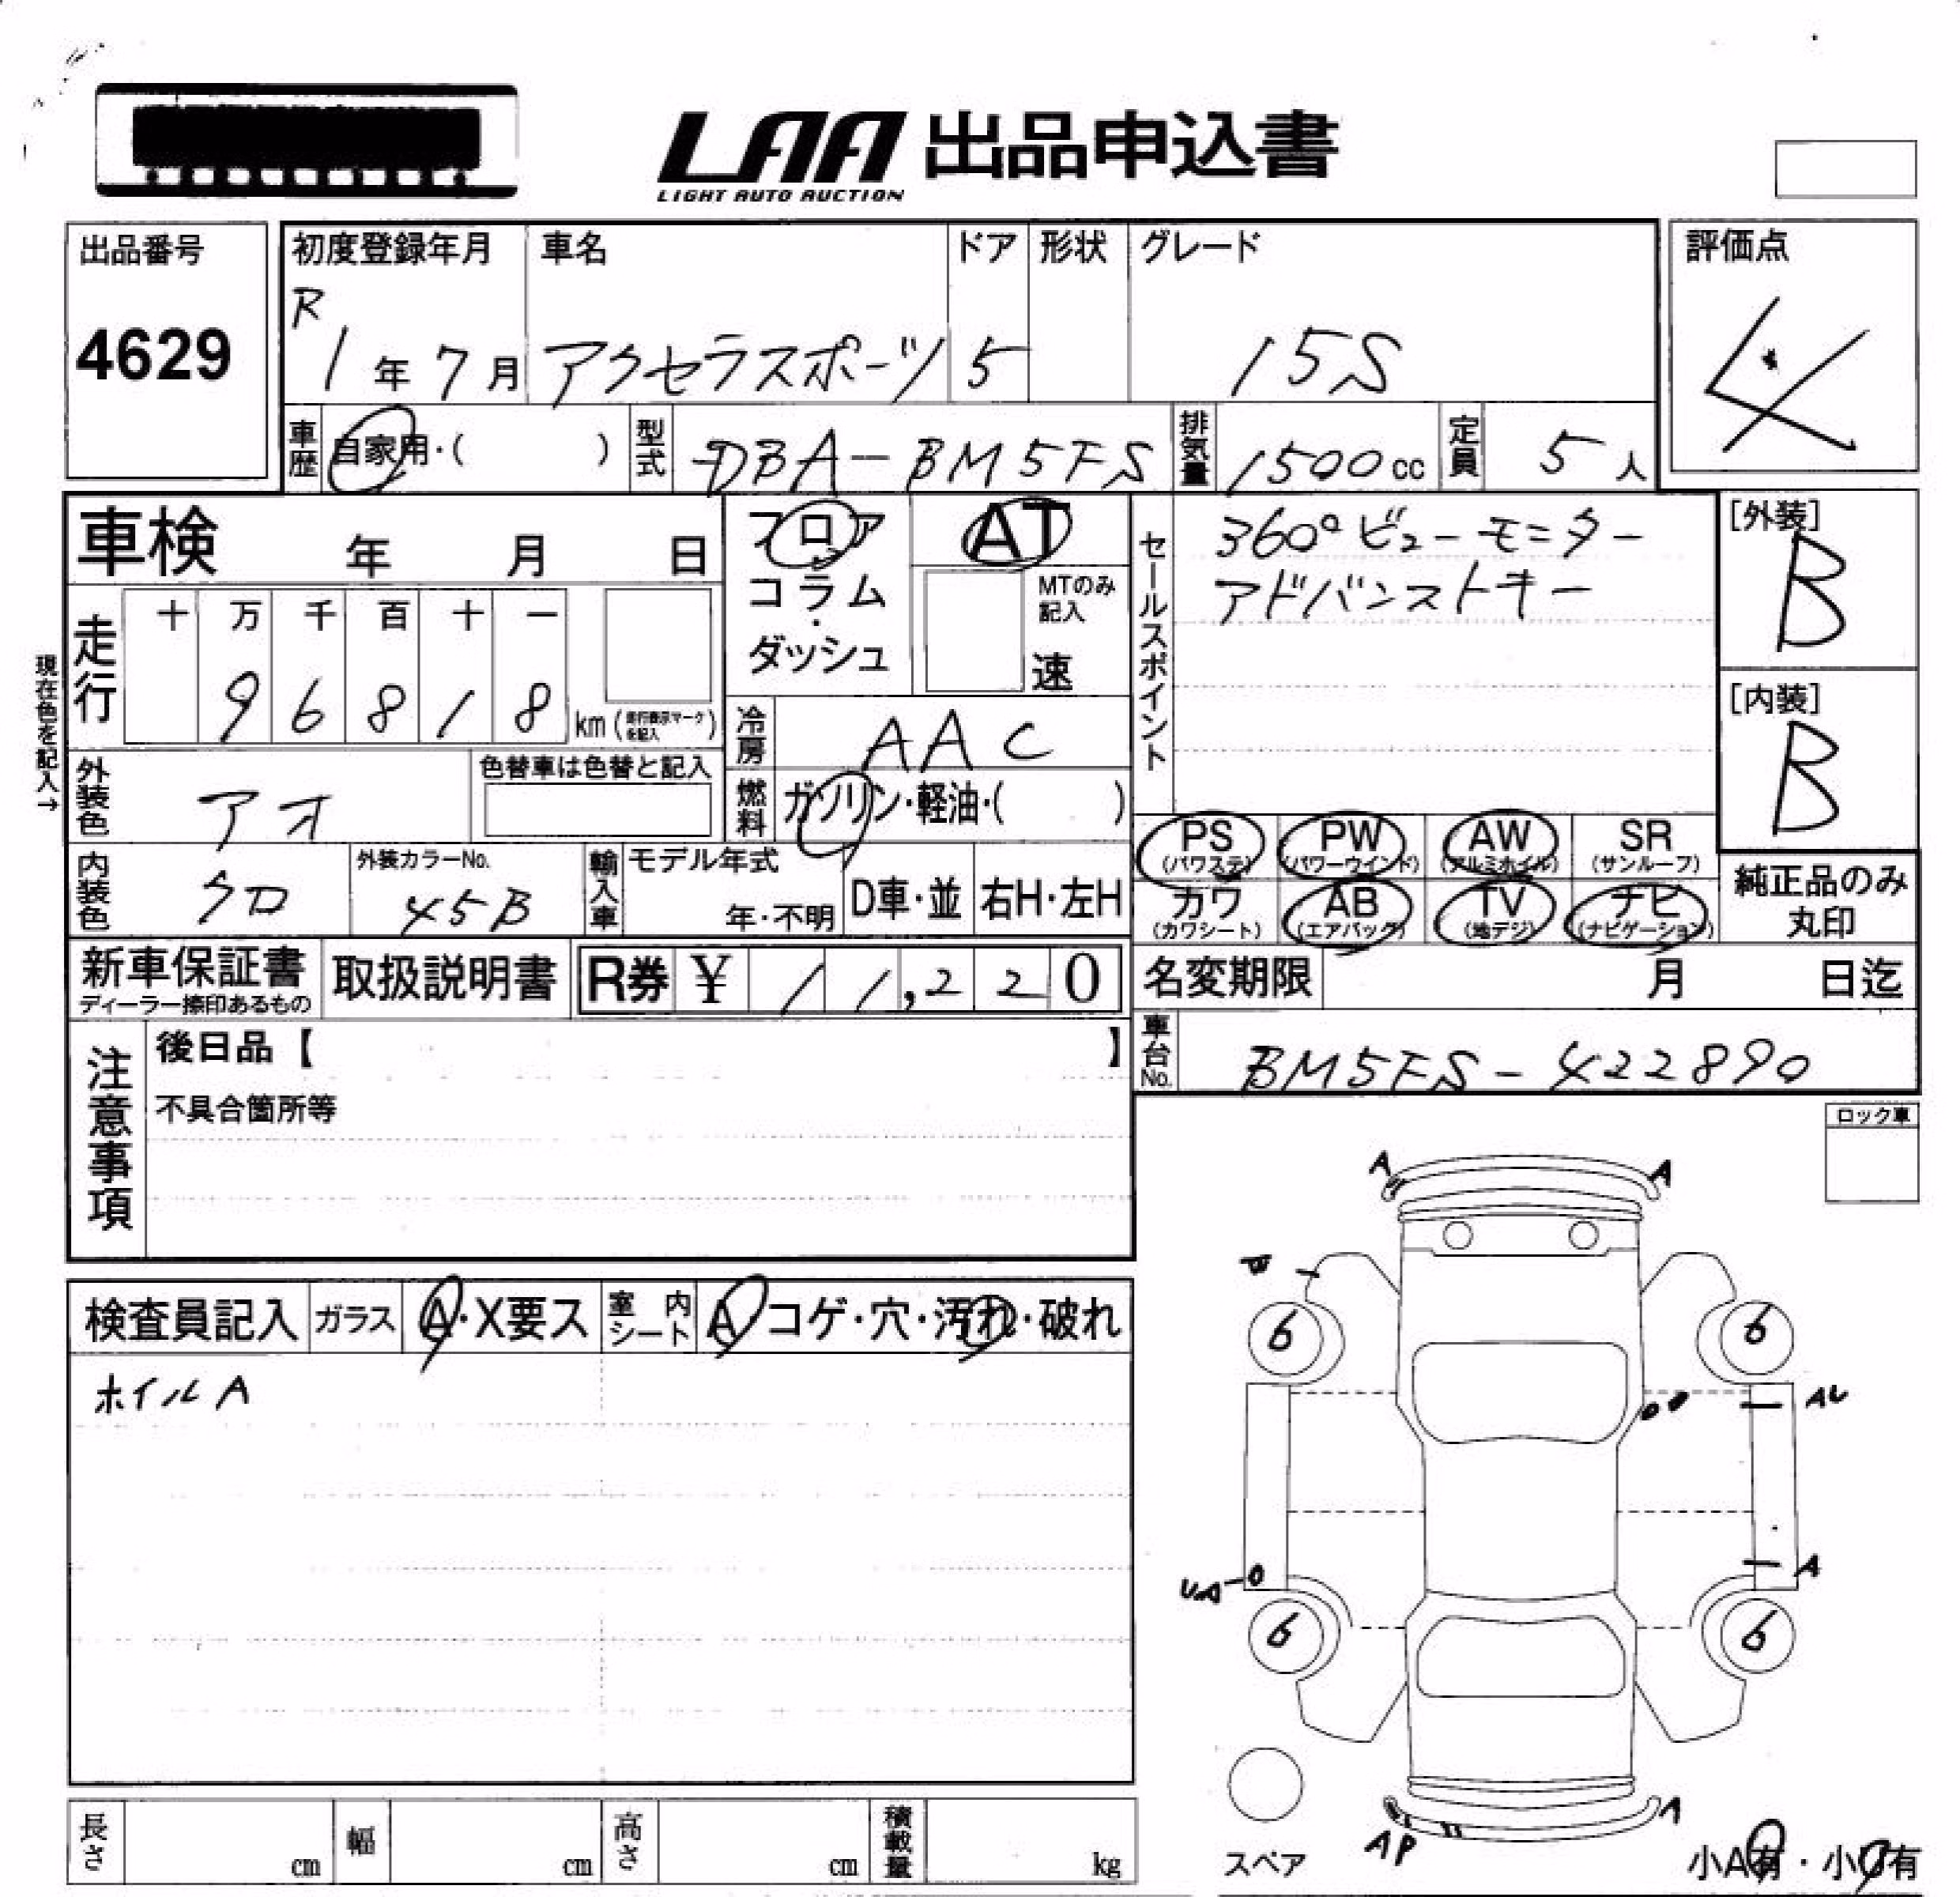 LAA 出品申込書
LIGHT AUTO AUCTION
出品番号
4629
初度登録年月
R
1年 7月
車名
アクセラスポーツ
ドア
5
形状
グレード
15S
評価点
4
車歴 自家用・( )
型式 DBA-BM5FS
排気量 1500cc
定員 5人
車検 年 月 日
フロア
コラム
・
ダッシュ
AT
MTのみ
記入
速
セールスポイント
360°ビューモニター
アドバンストキー
[外装]
B
[内装]
B
現在色を記入→
走行
十 万 千 百 十 一
9 6 8 1 8 km(走行表示マークを記入)
冷房 AAC
燃料 ガソリン・軽油・( )
外装色 アオ
色替車は色替と記入
内装色 クロ
外装カラーNo.
45B
輸入車
モデル年式
年・不明
D車・並
右H・左H
PS
(パワステ)
PW
(パワーウインド)
AW
(アルミホイル)
SR
(サンルーフ)
カワ
(カワシート)
AB
(エアバッグ)
TV
(地デジ)
ナビ
(ナビゲーション)
純正品のみ
丸印
新車保証書
ディーラー捺印あるもの
取扱説明書
R券 ¥ 11,220
名変期限 月 日迄
車台No. BM5FS-422890
注意事項
後日品【 】
不具合箇所等
ロック車
検査員記入
ガラス A・X要ス
室内シート A・コゲ・穴・汚れ・破れ
ホイルA
A A
6 6
AU
UA
A
6 6
スペア
AP
A
小A有・小U有
長さ cm
幅 cm
高さ cm
積載量 kg